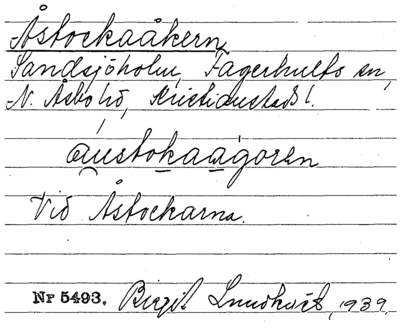 Åstockaåkern
Sandsjöholm, Fagerhults sn,
N. Åsbo hd, Kristianstads l.
áustokaagoren
Vid Åstockarna.
Nr 5493. Birgit Lundkvist, 1939.